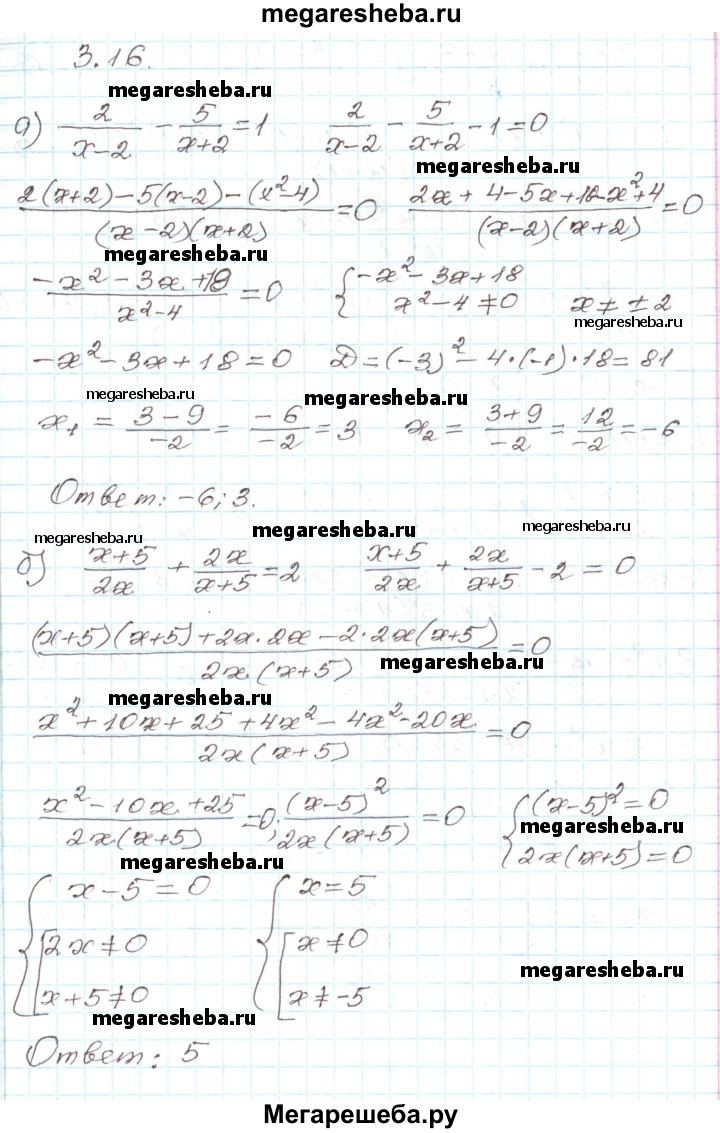 megaresheba.ru
3.16.
megaresheba.ru
а) 2/(x-2) - 5/(x+2) = 1    2/(x-2) - 5/(x+2) - 1 = 0
megaresheba.ru
(2(x+2) - 5(x-2) - (x²-4))/((x-2)(x+2)) = 0    (2x + 4 - 5x + 10 - x² + 4)/((x-2)(x+2)) = 0
megaresheba.ru
(-x² - 3x + 18)/(x²-4) = 0    { -x² - 3x + 18
x² - 4 ≠ 0    x ≠ ± 2
megaresheba.ru
-x² - 3x + 18 = 0    D = (-3)² - 4·(-1)·18 = 81
megaresheba.ru megaresheba.ru
x₁ = (3-9)/(-2) = (-6)/(-2) = 3    x₂ = (3+9)/(-2) = 12/(-2) = -6
Ответ: -6; 3.
megaresheba.ru megaresheba.ru megaresheba.ru
б) (x+5)/(2x) + (2x)/(x+5) = 2    (x+5)/(2x) + (2x)/(x+5) - 2 = 0
((x+5)(x+5) + 2x·2x - 2·2x(x+5))/(2x(x+5)) = 0
megaresheba.ru
megaresheba.ru
(x² + 10x + 25 + 4x² - 4x² - 20x)/(2x(x+5)) = 0
(x² - 10x + 25)/(2x(x+5)) = 0; (x-5)²/(2x(x+5)) = 0    { (x-5)² = 0
megaresheba.ru
2x(x+5) = 0
megaresheba.ru
{ x - 5 = 0    { x = 5
[ 2x ≠ 0    [ x ≠ 0
x + 5 ≠ 0    x ≠ -5
megaresheba.ru
megaresheba.ru
Ответ: 5
Мегарешеба.ру